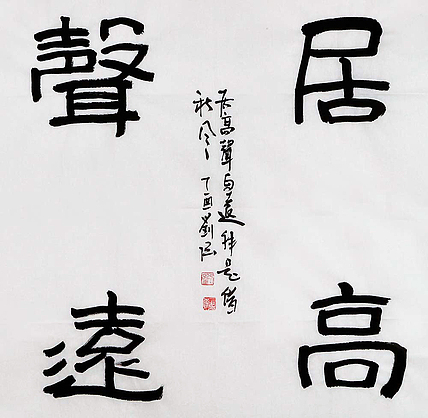 居高
聲遠
居高聲自遠非是藉
秋風 丁酉劉